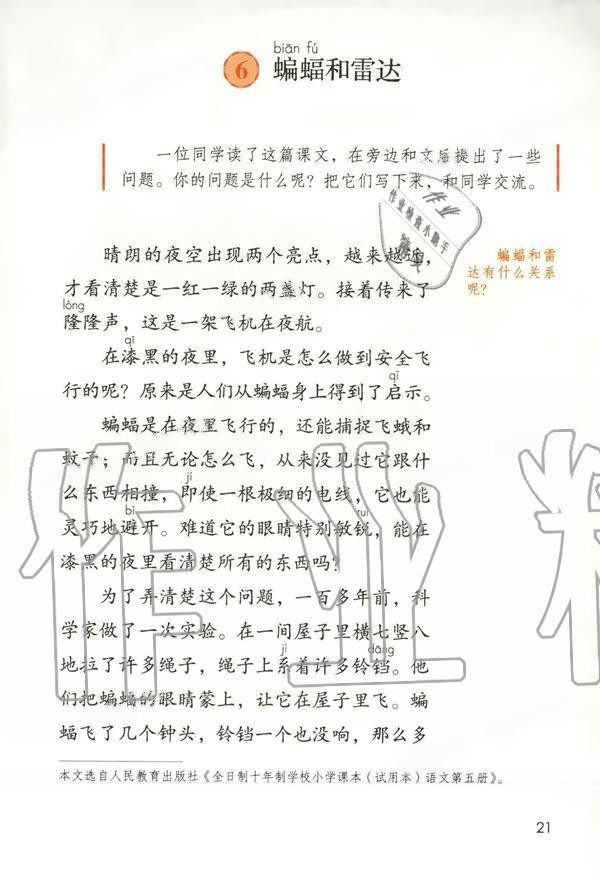 biān fú
6 蝙蝠和雷达
一位同学读了这篇课文，在旁边和文后提出了一些
问题。你的问题是什么呢？把它们写下来，和同学交流。
作业
作业检查小助手
晴朗的夜空出现两个亮点，越来越近，
才看清楚是一红一绿的两盏灯。接着传来了
lóng
隆隆声，这是一架飞机在夜航。
蝙蝠和雷
达有什么关系
呢？
qī
在漆黑的夜里，飞机是怎么做到安全飞
qǐ
行的呢？原来是人们从蝙蝠身上得到了启示。
蝙蝠是在夜里飞行的，还能捕捉飞蛾和
蚊子；而且无论怎么飞，从来没见过它跟什
jí
么东西相撞，即使一根极细的电线，它也能
bì ruì
灵巧地避开。难道它的眼睛特别敏锐，能在
漆黑的夜里看清楚所有的东西吗？
为了弄清楚这个问题，一百多年前，科
学家做了一次实验。在一间屋子里横七竖八
jì dāng
地拉了许多绳子，绳子上系着许多铃铛。他
们把蝙蝠的眼睛蒙上，让它在屋子里飞。蝙
蝠飞了几个钟头，铃铛一个也没响，那么多
本文选自人民教育出版社《全日制十年制学校小学课本（试用本）语文第五册》。
21
作业